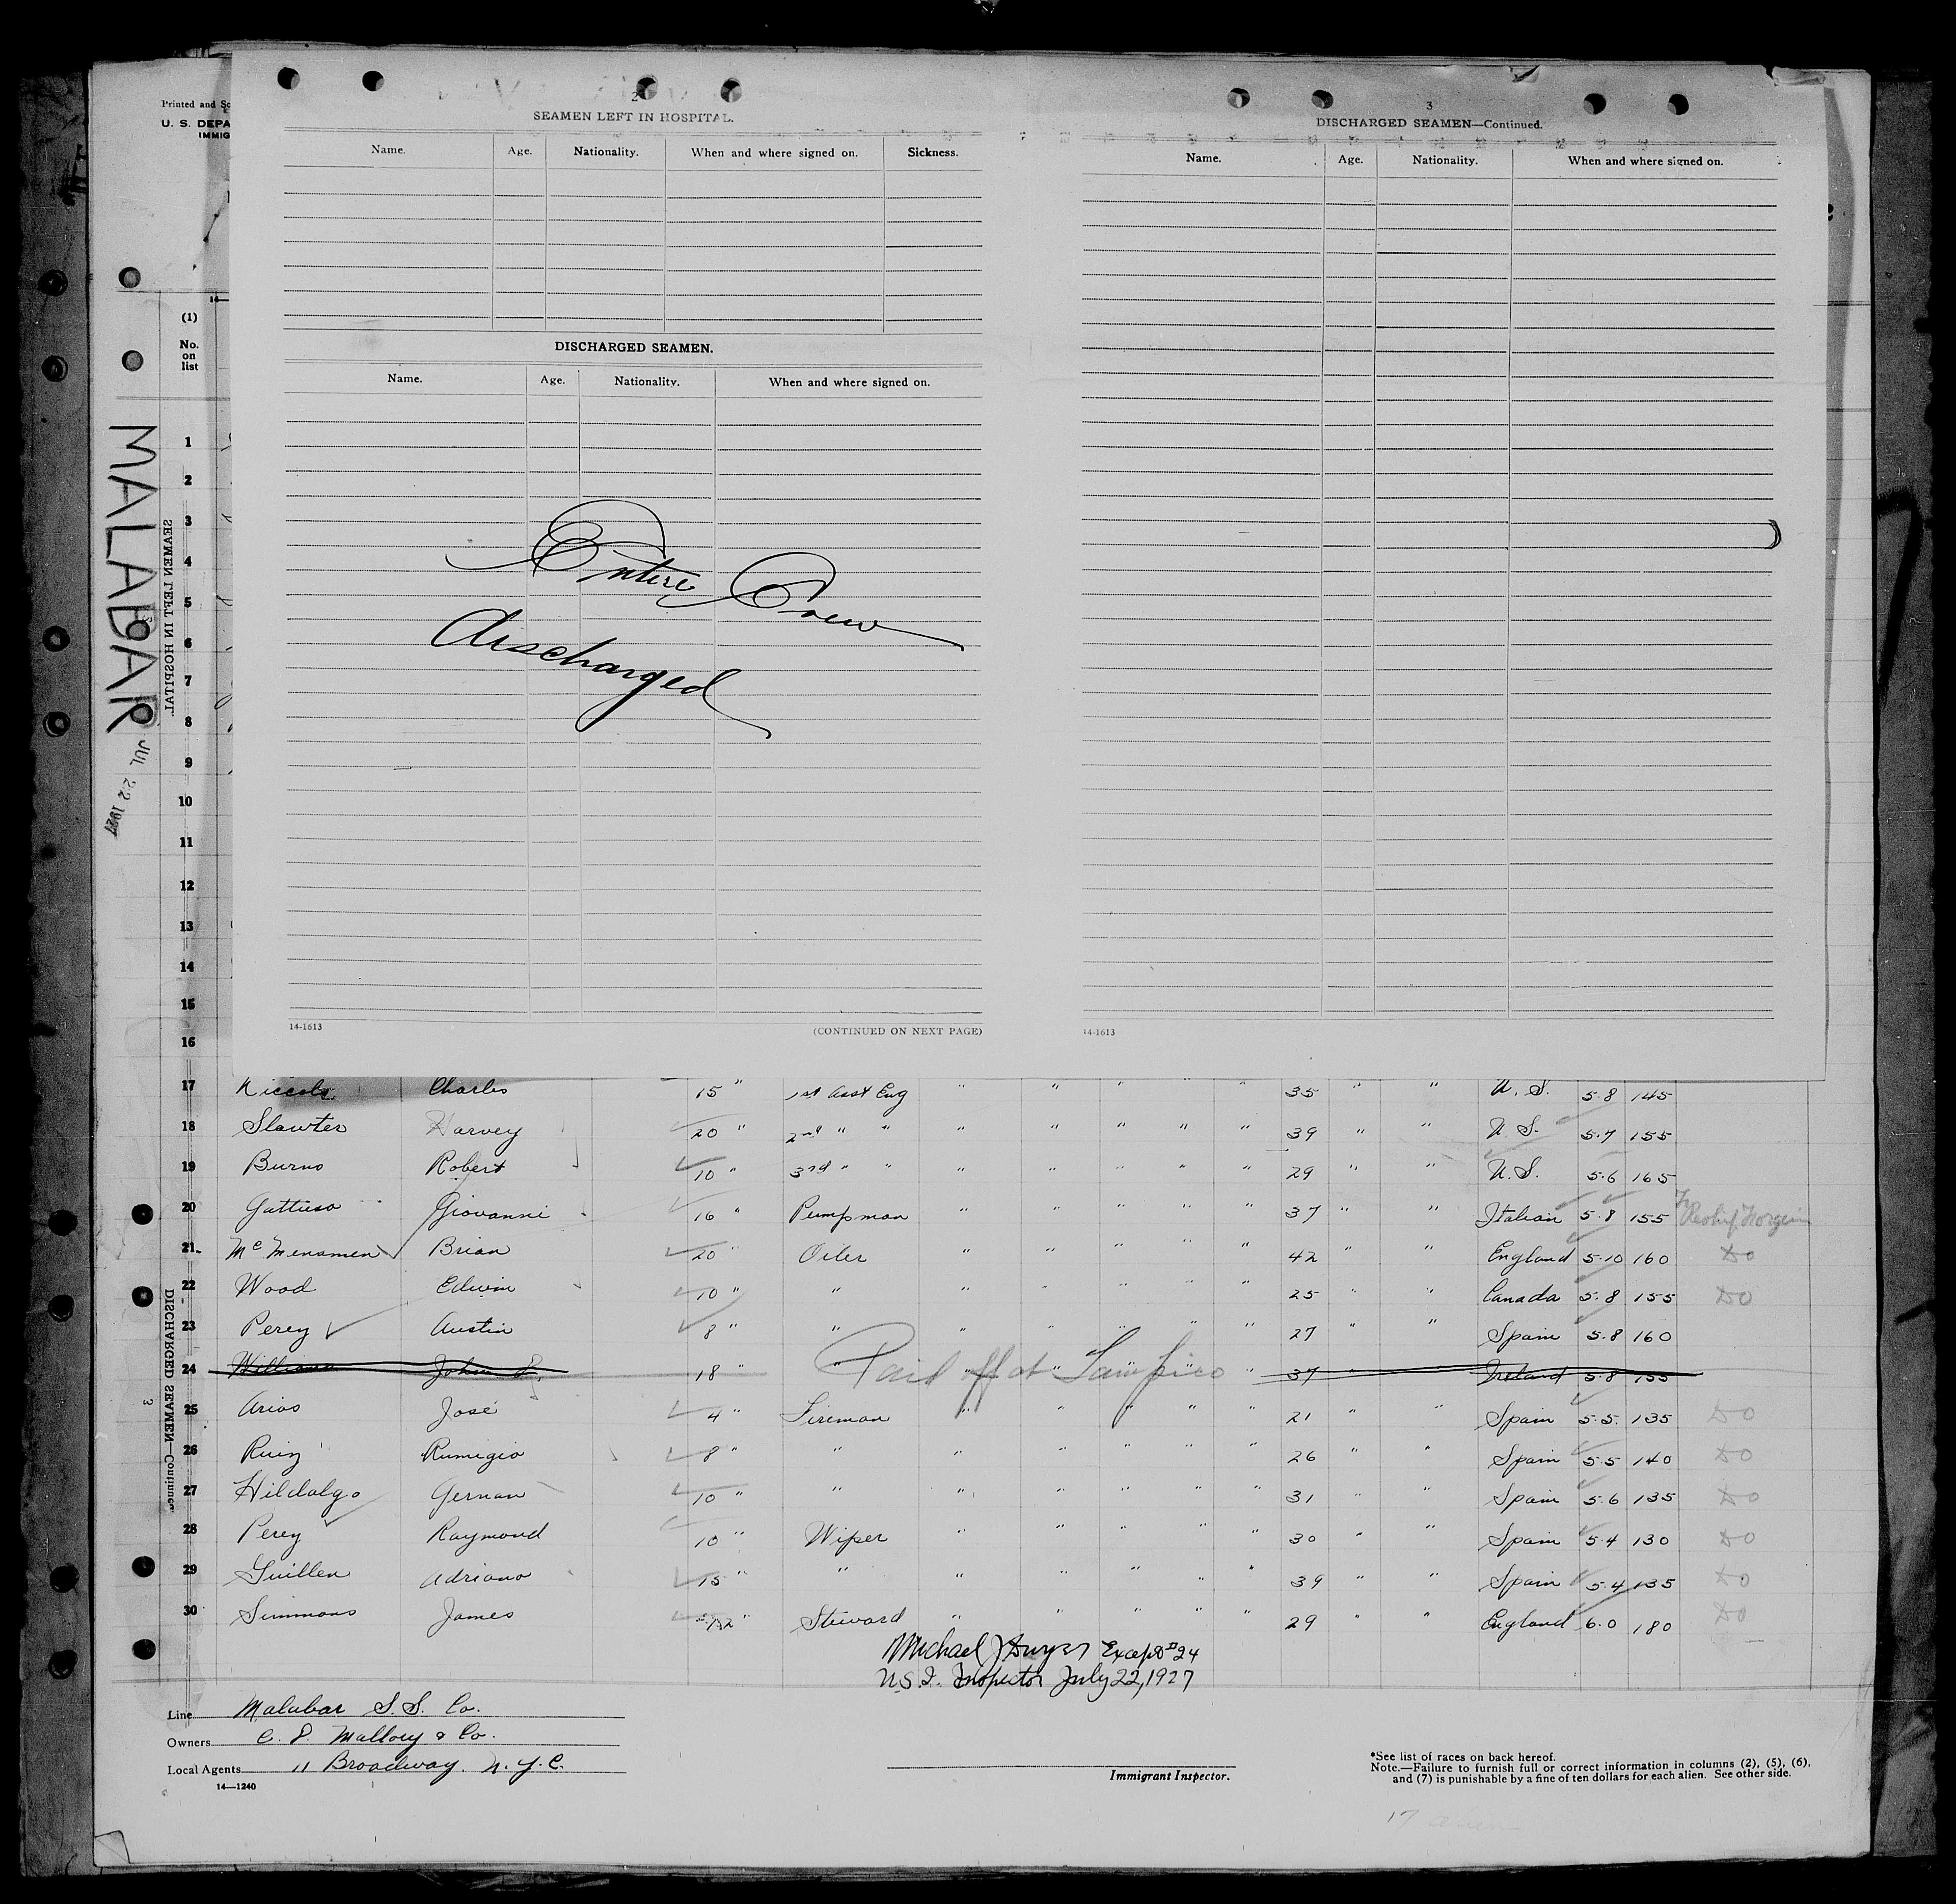 Printed and
U. S. DEPA
IMMIG
2
SEAMEN LEFT IN HOSPITAL.
Name. Age. Nationality. When and where signed on. Sickness.
DISCHARGED SEAMEN.
Name. Age. Nationality. When and where signed on.
Entire Crew
discharged
14-1613 (CONTINUED ON NEXT PAGE)
3
DISCHARGED SEAMEN—Continued.
Name. Age. Nationality. When and where signed on.
14-1613
MALABAR
JUL 22 1927
SEAMEN LEFT IN HOSPITAL.
DISCHARGED SEAMEN—Continued
3
14
(1)
No.
on
list
1
2
3
4
5
6
7
8
9
10
11
12
13
14
15
16
17 Niccols Charles 15 " 1st Asst Eng " " " " " 35 " " U. S. 5.8 145
18 Slawter Harvey 20 " 2nd " " " " " " " 39 " " U S. 5.7 155
19 Burns Robert 10 " 3rd " " " " " " " 29 " " U.S. 5.6 165
20 Gattuso Giovanni 16 " Pumpman " " " " " 37 " " Italian 5.8 155
21 Mc Menamen Brian 20 " Oiler " " " " " 42 " " England 5.10 160 Do
22 Wood Edwin 10 " " " " " " " 25 " " Canada 5.8 155 Do
23 Perey Austin 8 " " " " " " " 27 " " Spain 5.8 160
24 Williams John P. 18 " " Paid off at Tampico " 37 " " Ireland 5.8 155
25 Arios José 4 " Fireman " " " " " 21 " " Spain 5.5. 135 Do
26 Ruiz Rumigio 8 " " " " " " " 26 " " Spain 5.5 140 Do
27 Hildalgo German 10 " " " " " " " 31 " " Spain 5.6 135 Do
28 Perey Raymond 10 " Wiper " " " " " 30 " " Spain 5.4 130 Do
29 Guillen Adriano 15 " " " " " " " 39 " " Spain 5.4 135 Do
30 Simmons James 12 " Steward " " " " " 29 " " England 6.0 180 Do
Michael J Dwyer Except #24
U.S.I. Inspector July 22, 1927
Line Malabar S.S. Co.
Owners C. D. Mallory & Co.
Local Agents 11 Broadway. N. Y. C.
14—1240
Immigrant Inspector.
*See list of races on back hereof.
Note.—Failure to furnish full or correct information in columns (2), (5), (6),
and (7) is punishable by a fine of ten dollars for each alien. See other side.
17